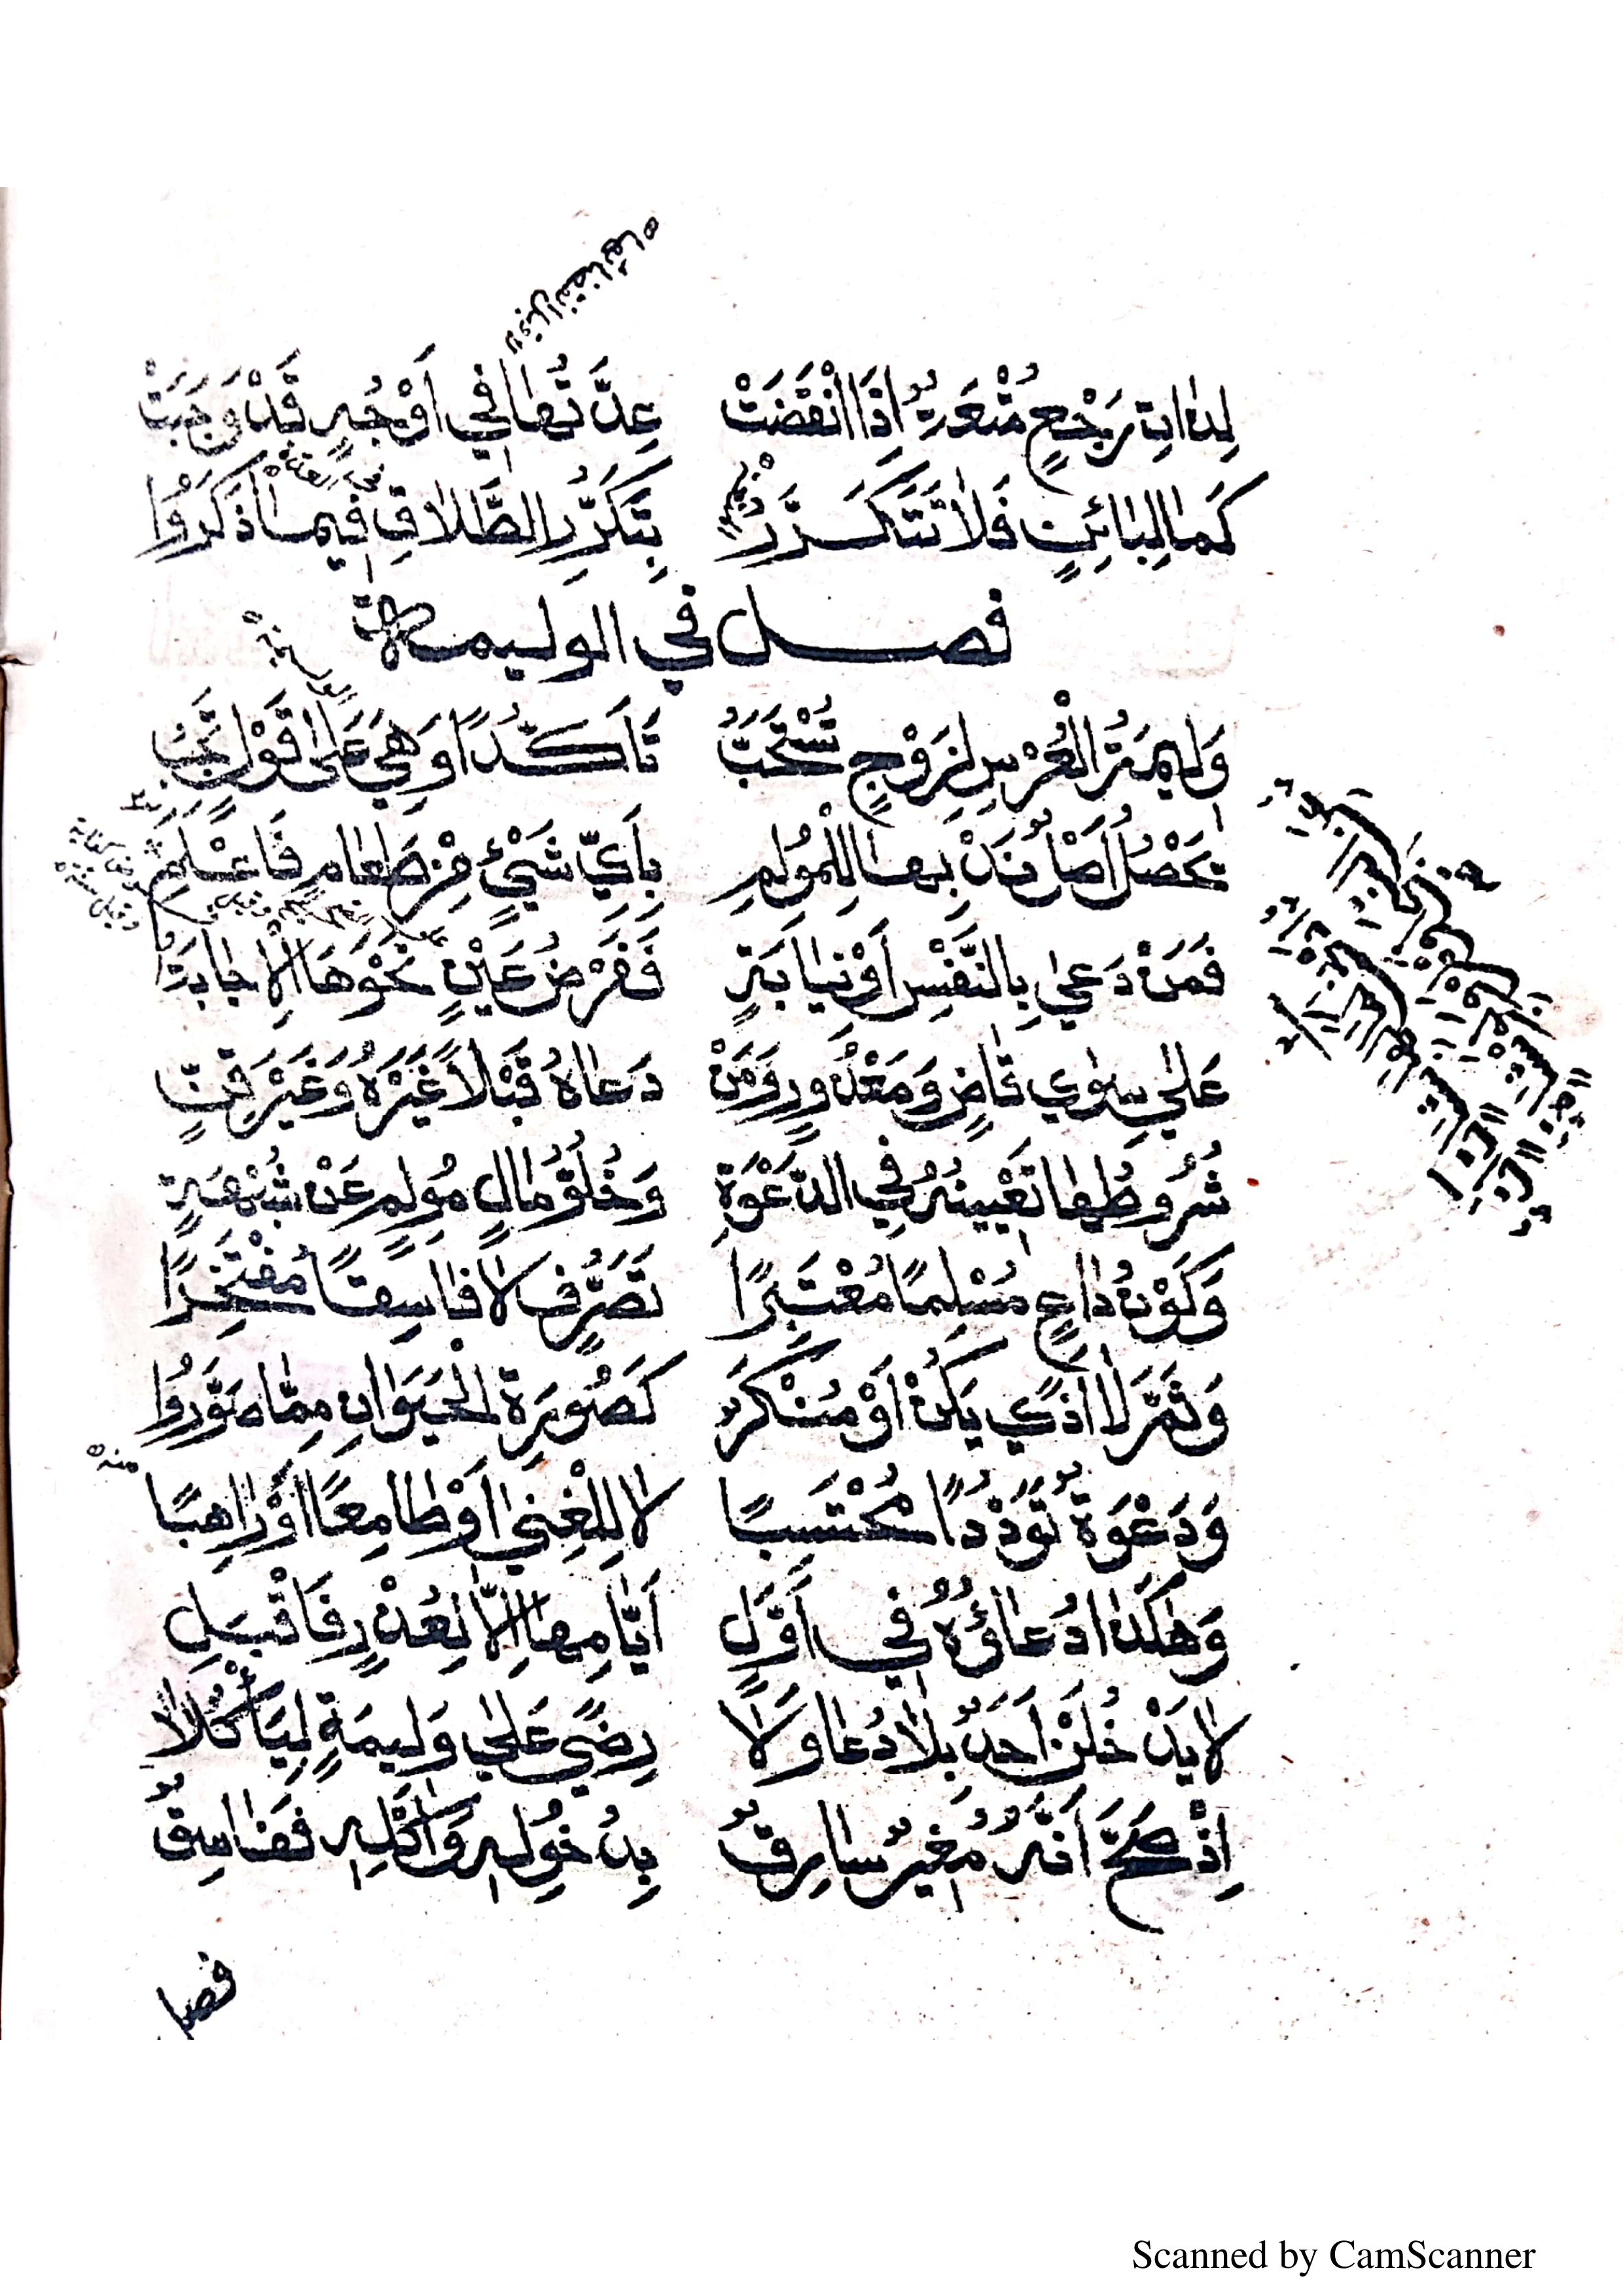 لِذَاتِ رَجْعٍ مُتْعَةٌ إِذَا انْقَضَتْ عِدَّتُهَا فِي أَوْجُهٍ قَدْ وَجَبَتْ
كَمَا لِبَائِنٍ فَلَا تَتَكَرَّرُ بِتَكَرُّرِ الطَّلَاقِ فِيمَا ذَكَرُوا
فصل في الوليمة
وَلِيمَةُ الْعُرْسِ لِزَوْجٍ تُسْتَحَبُّ تَأَكُّدًا وَهِيَ عَلَى قَوْلٍ تَجِبُ
يَحْصُلُ أَصْلُ نَدْبِهَا لِلْمُولِمِ بِأَيِّ شَيْئٍ مِنْ طَعَامٍ فَاعْلَمِ
فَمَنْ دَعَى بِالنَّفْسِ أَوْ نِيَابَةٍ فَفَرْضُ عَيْنٍ نَحْوَهَا الْإِجَابَةُ
عَلَى سِوَى قَاضٍ وَمَعْذُورٍ وَمَنْ دَعَاهُ قَبْلًا غَيْرُهُ وَغَيْرَ قِنٍّ
شُرُوطُهَا تَعْيِينُهُ فِي الدَّعْوَةِ وَخُلُوُّ مَالٍ مُولِمٍ عَنْ شُبْهَةٍ
وَكَوْنُ دَاعٍ مُسْلِمًا مُعْتَبَرًا تَصَرُّفٍ لَا فَاسِقًا مُفْتَخِرًا
وَثَمَّ لَا أَذًى يَكُنْ أَوْ مُنْكَرٌ كَصُورَةِ الْحَيَوَانِ مِمَّا صَوَّرُوا
وَدَعْوَةٌ تَوَدُّدًا مُحْتَسِبًا لَا لِلْغِنَى أَوْ طَامِعًا أَوْ رَاهِبًا
منه
وَهَكَذَا دُعَاؤُهُ فِي أَوَّلِ أَيَّامِهَا إِلَّا لِعُذْرٍ فَاقْبَلِ
لَا يَدْخُلَنْ أَحَدٌ بِلَا دُعَا وَلَا رِضًى عَلَى وَلِيمَةٍ لِيَأْكُلَا
إِذْ صَحَّ أَنَّهُ مُغِيرٌ سَارِقٌ بِدُخُولِهِ وَأَكْلِهِ فَفَاسِقٌ
فصل
Scanned by CamScanner